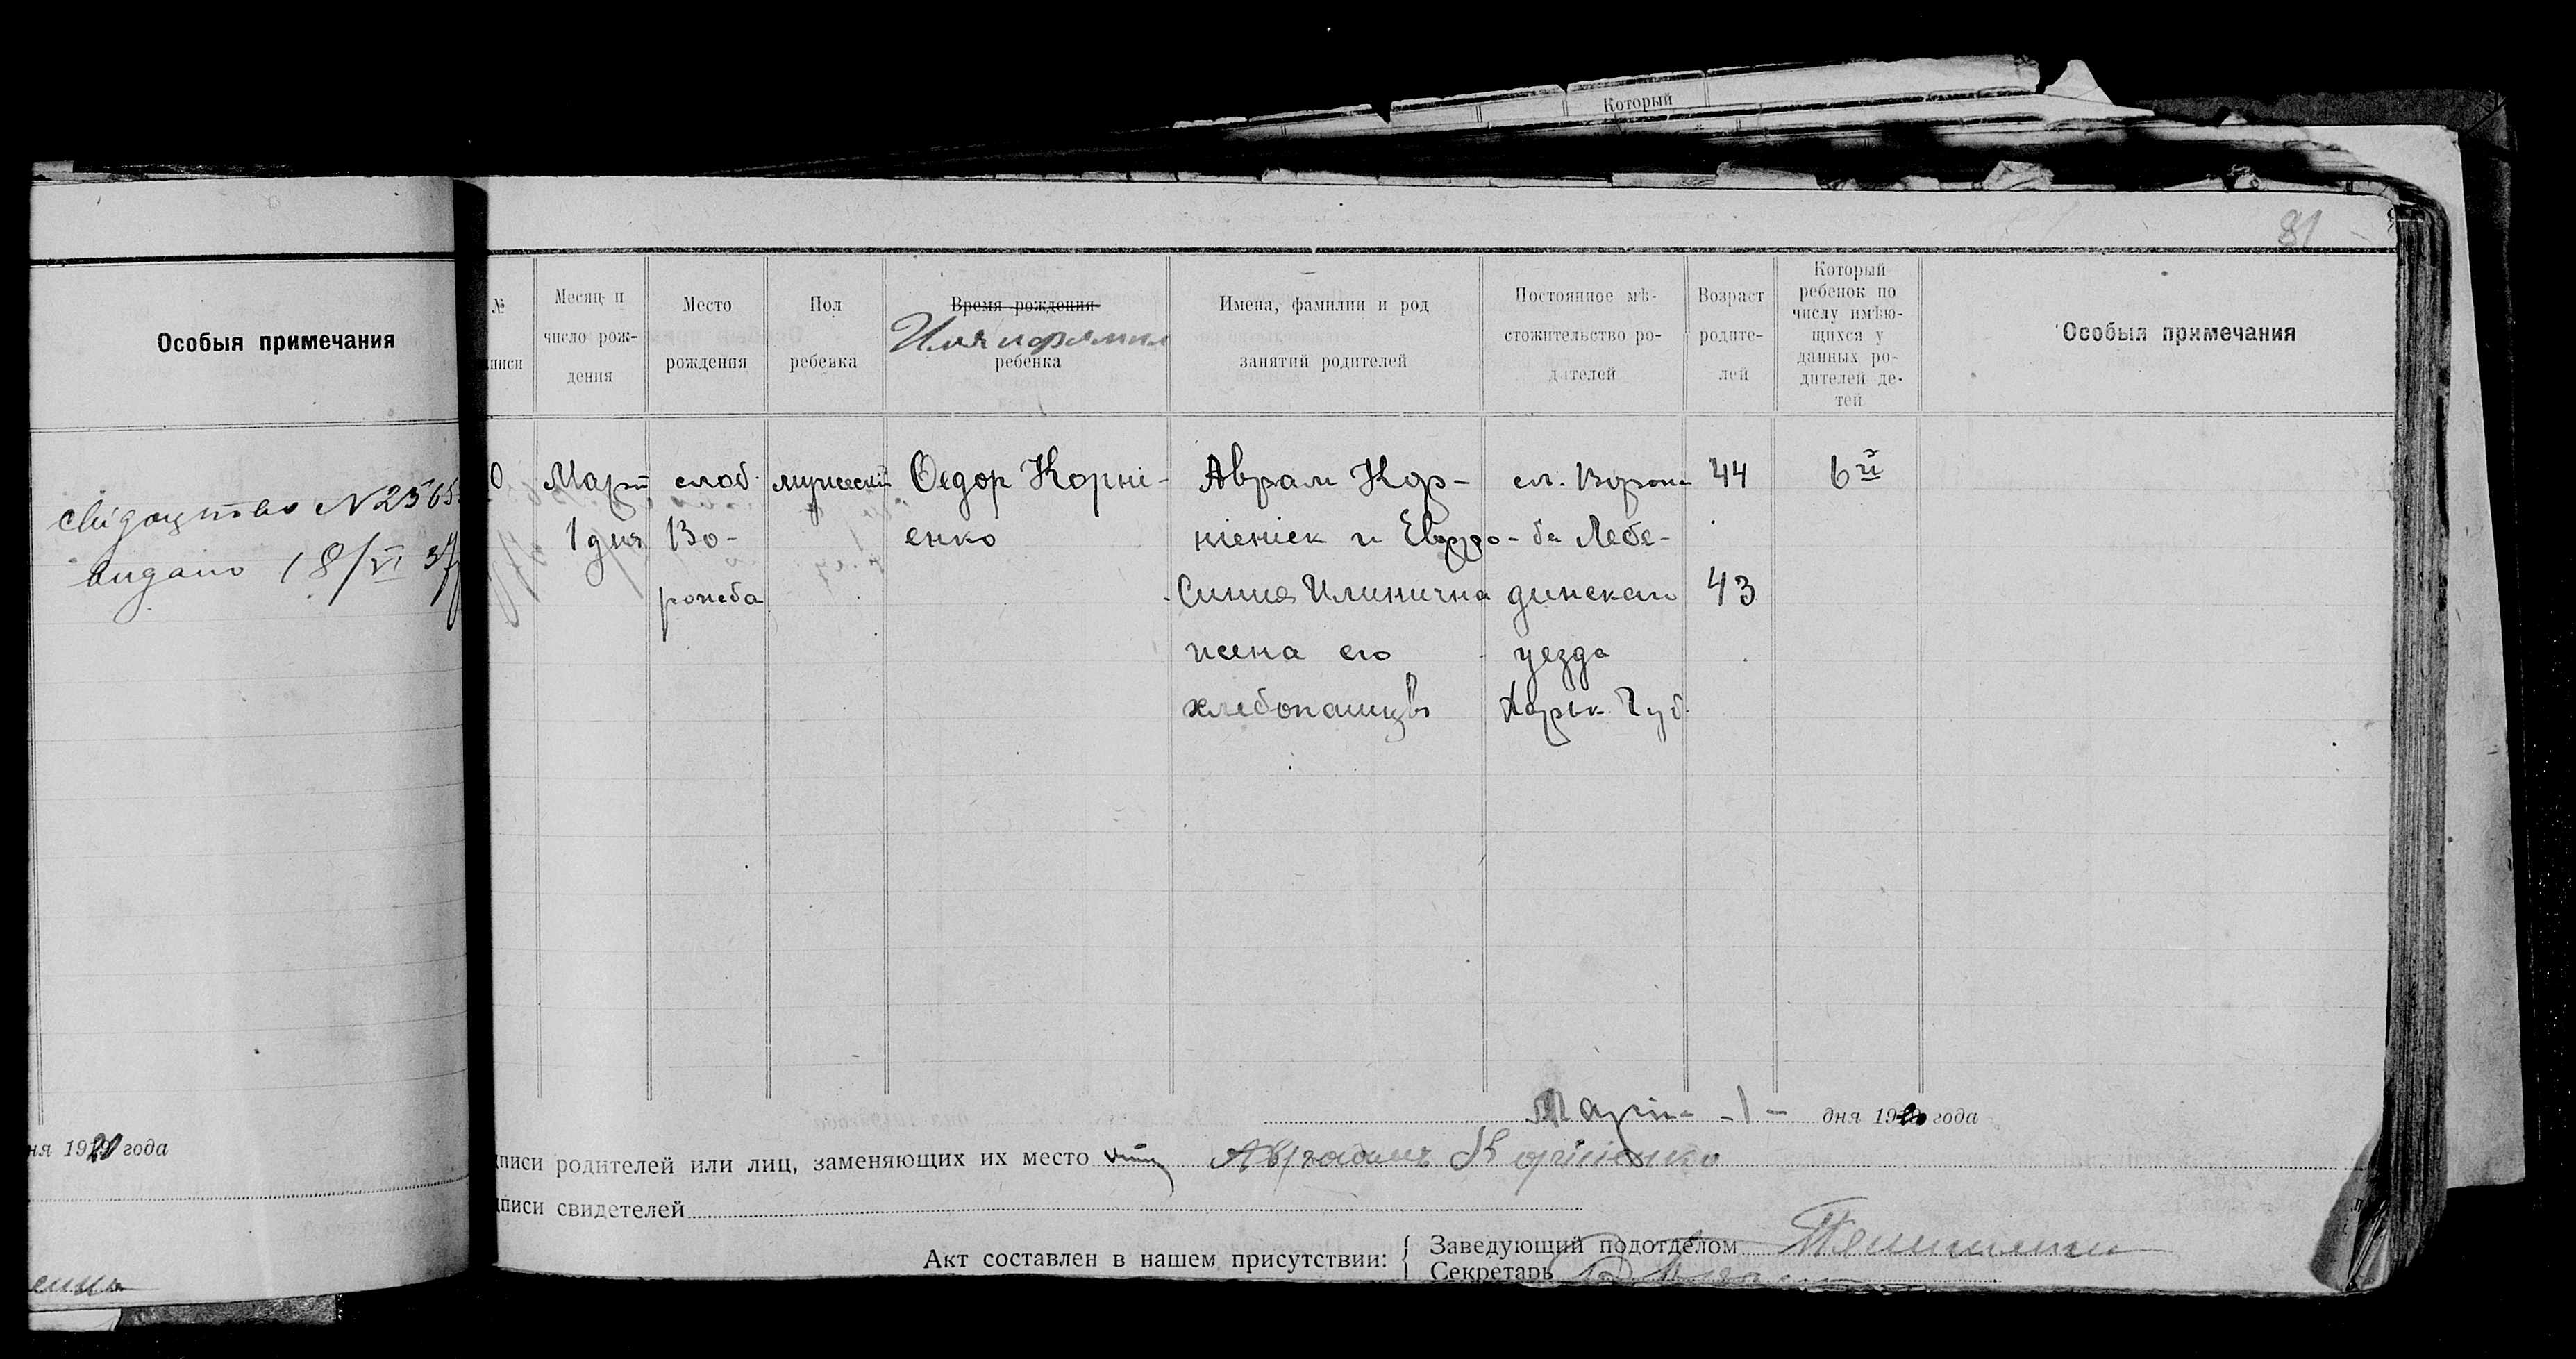 Который
81
Особыя примечания
свідоцтво N 2565
видано 18/VI 37
ня 1921 года
№
писи
Месяц и
число рож-
дения
Место
рождения
Пол
ребенка
Время рождения
Имя и фамил
ребенка
Имена, фамилии и род
занятий родителей
Постоянное мѣ-
стожительство ро-
дителей
Возраст
родите-
лей
Который
ребенок по
числу имѣю-
щихся у
данных ро-
дителей де-
тей
Особыя примечания
0
Март
1 дня
слоб.
Во-
рожба
мужеский
Федор Корні-
енко
Аврам Кор-
ніенко и Евдро-
Синия Илинична
жена его
хлебопашцы
сл. Ворож-
ба Лебе-
динскаго
уезда
Харьк. Губ.
44
43
6й
Март - 1 - дня 19 года
писи родителей или лиц, заменяющих их место Авраамъ Корніенко
писи свидетелей
Акт составлен в нашем присутствии:
Заведующий подотделом
Секретарь